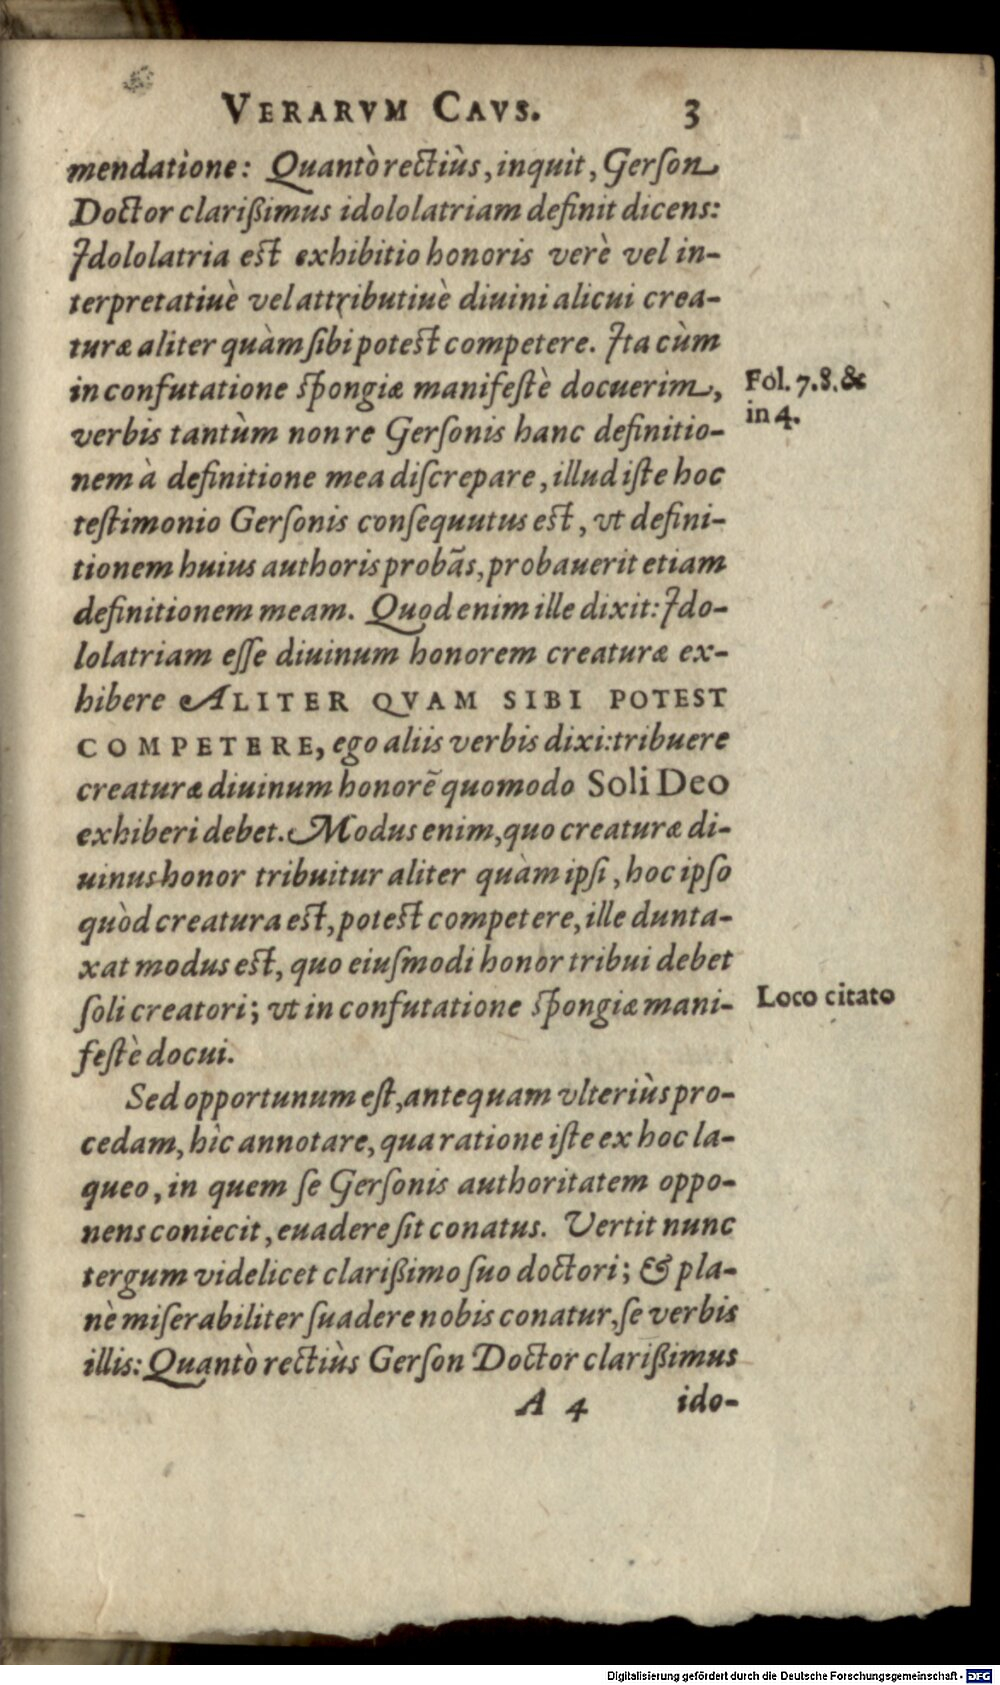 VERARVM CAVS. 3
mendatione: Quantò rectiùs, inquit, Gerſon
Doctor clarißimus idololatriam definit dicens:
Idololatria est exhibitio honoris verè vel in-
terpretatiuè vel attributiuè diuini alicui crea-
turæ aliter quàm ſibi potest competere. Ita cùm
in confutatione ſpongiæ manifeſtè docuerim,
Fol. 7. 8. &
in 4.
verbis tantùm non re Gerſonis hanc definitio-
nem à definitione mea diſcrepare, illud iſte hoc
teſtimonio Gerſonis conſequutus est, vt defini-
tionem huius authoris probãs, probauerit etiam
definitionem meam. Quod enim ille dixit: Ido-
lolatriam eſſe diuinum honorem creaturæ ex-
hibere ALITER QVAM SIBI POTEST
COMPETERE, ego aliis verbis dixi: tribuere
creaturæ diuinum honorẽ quomodo Soli Deo
exhiberi debet. Modus enim, quo creaturæ di-
uinus honor tribuitur aliter quàm ipſi, hoc ipſo
quòd creatura est, potest competere, ille dunta-
xat modus est, quo eiuſmodi honor tribui debet
ſoli creatori; vt in confutatione ſpongiæ mani-
Loco citato
feſtè docui.
Sed opportunum eſt, antequam vlteriùs pro-
cedam, hîc annotare, qua ratione iſte ex hoc la-
queo, in quem ſe Gerſonis authoritatem oppo-
nens coniecit, euadere ſit conatus. Vertit nunc
tergum videlicet clarißimo ſuo doctori; & pla-
nè miſerabiliter ſuadere nobis conatur, ſe verbis
illis: Quantò rectiùs Gerſon Doctor clarißimus
A 4 ido-
Digitalisierung gefördert durch die Deutsche Forschungsgemeinschaft - DFG